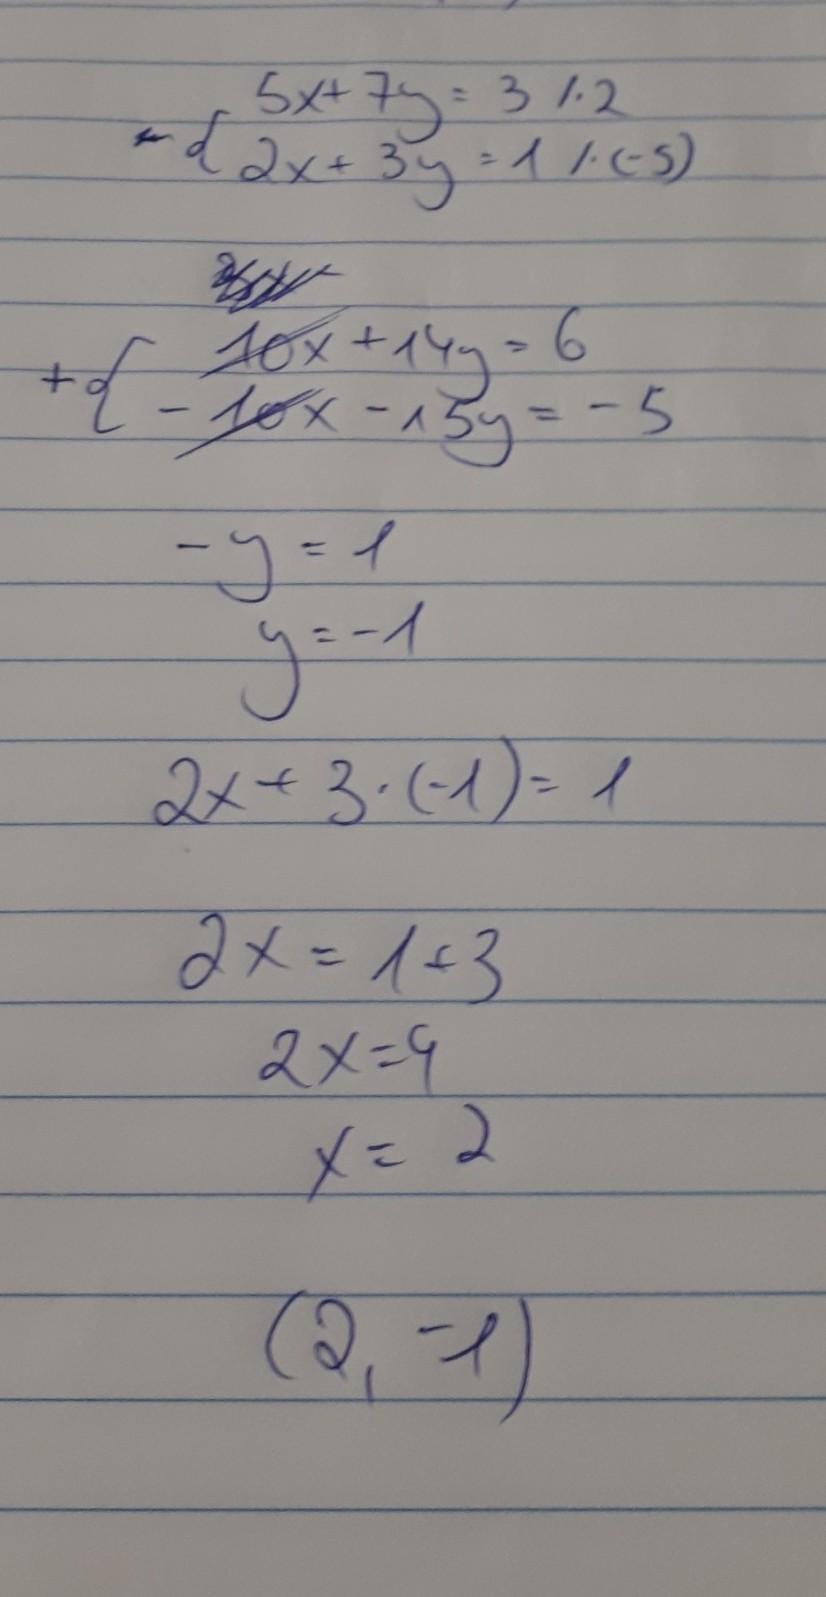 5x+7y=3 /·2
-{ 2x+3y=1 /·(-5)
10x+14y=6
+{ -10x-15y=-5
-y=1
y=-1
2x+3·(-1)=1
2x=1+3
2x=4
x=2
(2,-1)